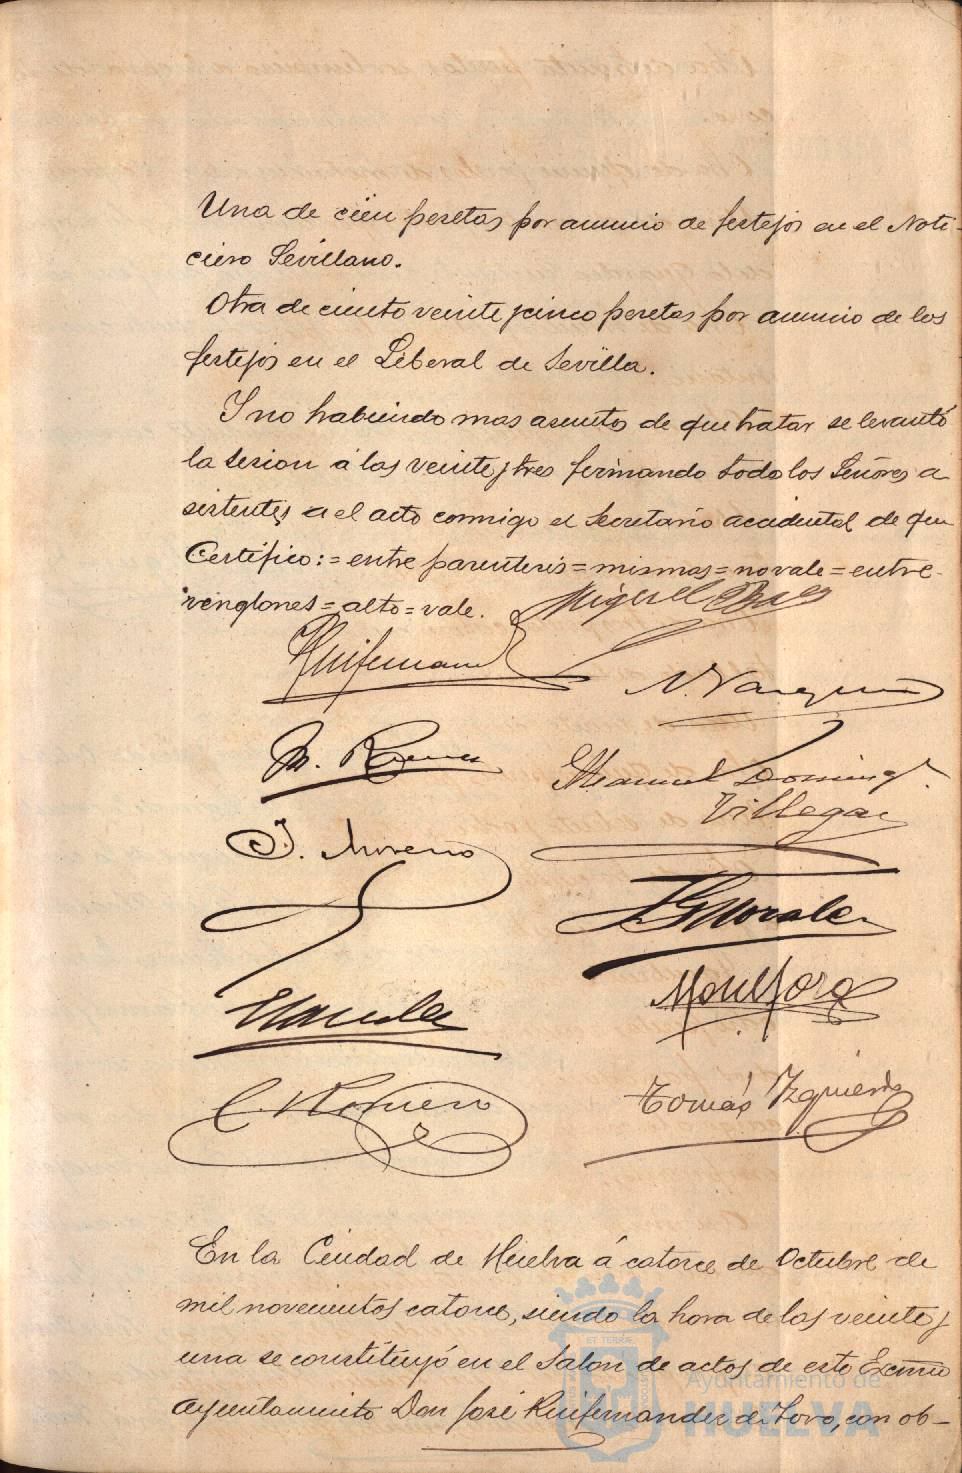 Una de cien pesetas por anuncio de festejos en el Noti-
ciero Sevillano.
Otra de ciento veinte y cinco pesetas por anuncio de los
festejos en el Liberal de Sevilla.
Y no habiendo mas asuntos de que tratar se levantó
la sesion á las veinte y tres firmando todo los Señores a
sistentes a el acto conmigo el Secretario accidental de que
Certifico:=entre parentesis=mismas=no vale=entre-
renglones=alto=vale.
Miguel
N. Vazquez
M.
Manuel Doming
Villegas
J. Moreno
J G Morales
C. Romero
Tomás Izquierdo
En la Ciudad de Huelva á catorce de Octubre de
mil novecientos catorce, siendo la hora de las veinte y
una se constituyó en el Salon de actos de este Excmo
Ayuntamiento Don José Ruifernandez de Toro, con ob-
Ayuntamiento de
HUELVA